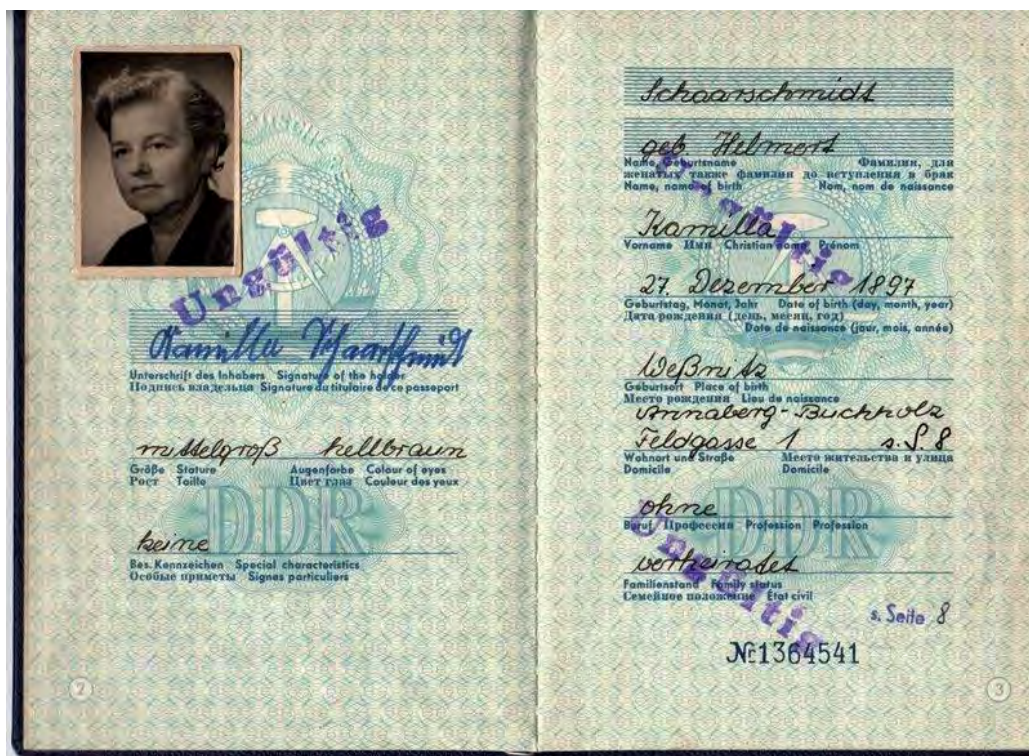 Ungültig
Kamilla Schaarschmidt
Unterschrift des Inhabers Signature of the holder
Подпись владельца Signature du titulaire de ce passeport
mittelgroß hellbraun
Größe Stature Augenfarbe Colour of eyes
Рост Taille Цвет глаз Couleur des yeux
DDR
keine
Bes. Kennzeichen Special characteristics
Особые приметы Signes particuliers
2
Schaarschmidt
geb. Helmert
Name, Geburtsname Фамилия, для
женатых также фамилия до вступления в брак
Name, name of birth Nom, nom de naissance
Ungültig
Kamilla
Vorname Имя Christian name Prénom
27. Dezember 1897
Geburtstag, Monat, Jahr Date of birth (day, month, year)
Дата рождения (день, месяц, год)
Date de naissance (jour, mois, année)
Weßnitz
Geburtsort Place of birth
Место рождения Lieu de naissance
Annaberg-Buchholz
Feldgasse 1 s. S. 8
Wohnort und Straße Место жительства и улица
Domicile Domicile
DDR
ohne
Beruf Профессия Profession Profession
Ungültig
verheiratet
Familienstand Family status
Семейное положение État civil
s. Seite 8
№1364541
3